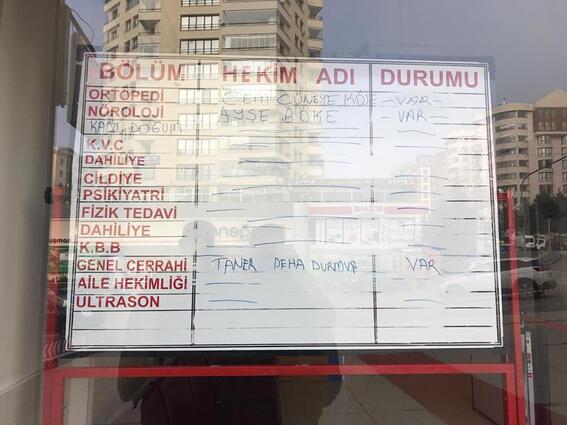 BÖLÜM HEKİM ADI DURUMU
ORTOPEDİ CEM CÜNEYE KÖSE -VAR-
NÖROLOJİ AYŞE BÖKE -VAR-
KADIN DOĞUM
K.V.C
DAHİLİYE
CİLDİYE
PSİKİYATRİ
FİZİK TEDAVİ
DAHİLİYE
K.B.B
GENEL CERRAHİ TANER DEHA DURMUŞ VAR
AİLE HEKİMLİĞİ
ULTRASON